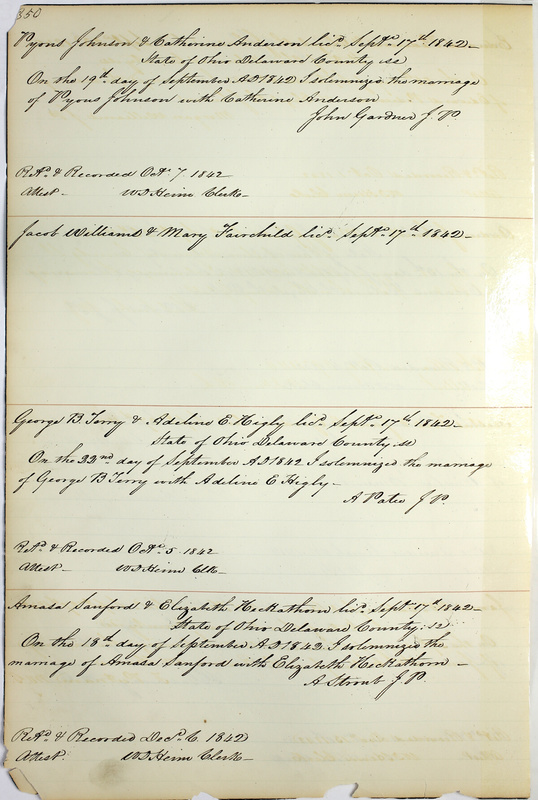 350
Pyons Johnson & Catherine Anderson licd. Sept. 17th 1842-
State of Ohio Delaware County ss
On the 19th day of September AD 1842 I solemnized the marriage
of Pyons Johnson with Catherine Anderson
John Gardner J. P.
Retd. & Recorded Oct. 7. 1842
Attest- W D Heim Clerk-
Jacob Williams & Mary Fairchild licd. Sept. 17th 1842-
George B. Terry & Adeline E Higly licd. Sept. 17th 1842-
State of Ohio Delaware County ss
On the 22nd day of September AD 1842 I solemnized the marriage
of George B Terry with Adeline E Higly-
A Pateé J P.
Retd. & Recorded Oct. 5. 1842
Attest- W D Heim Clk-
Amasa Sanford & Elizabeth Heckathorn licd. Sept. 17th 1842-
State of Ohio Delaware County: ss
On the 18th day of September AD 1842 I solemnized the
marriage of Amasa Sanford with Elizabeth Heckathorn-
A Stroub J P.
Retd. & Recorded Dec. 6. 1842
Attest. W D Heim Clerk-